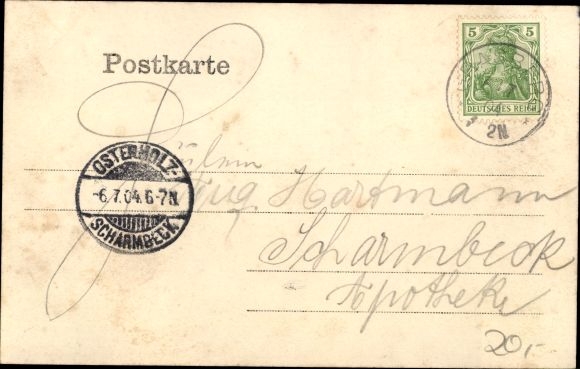 Postkarte
5 5
DEUTSCHES REICH
2N
OSTERHOLZ-
-6.7.04.6-7N
SCHARMBECK
Hartmann
Scharmbeck
Apotheke
20,-